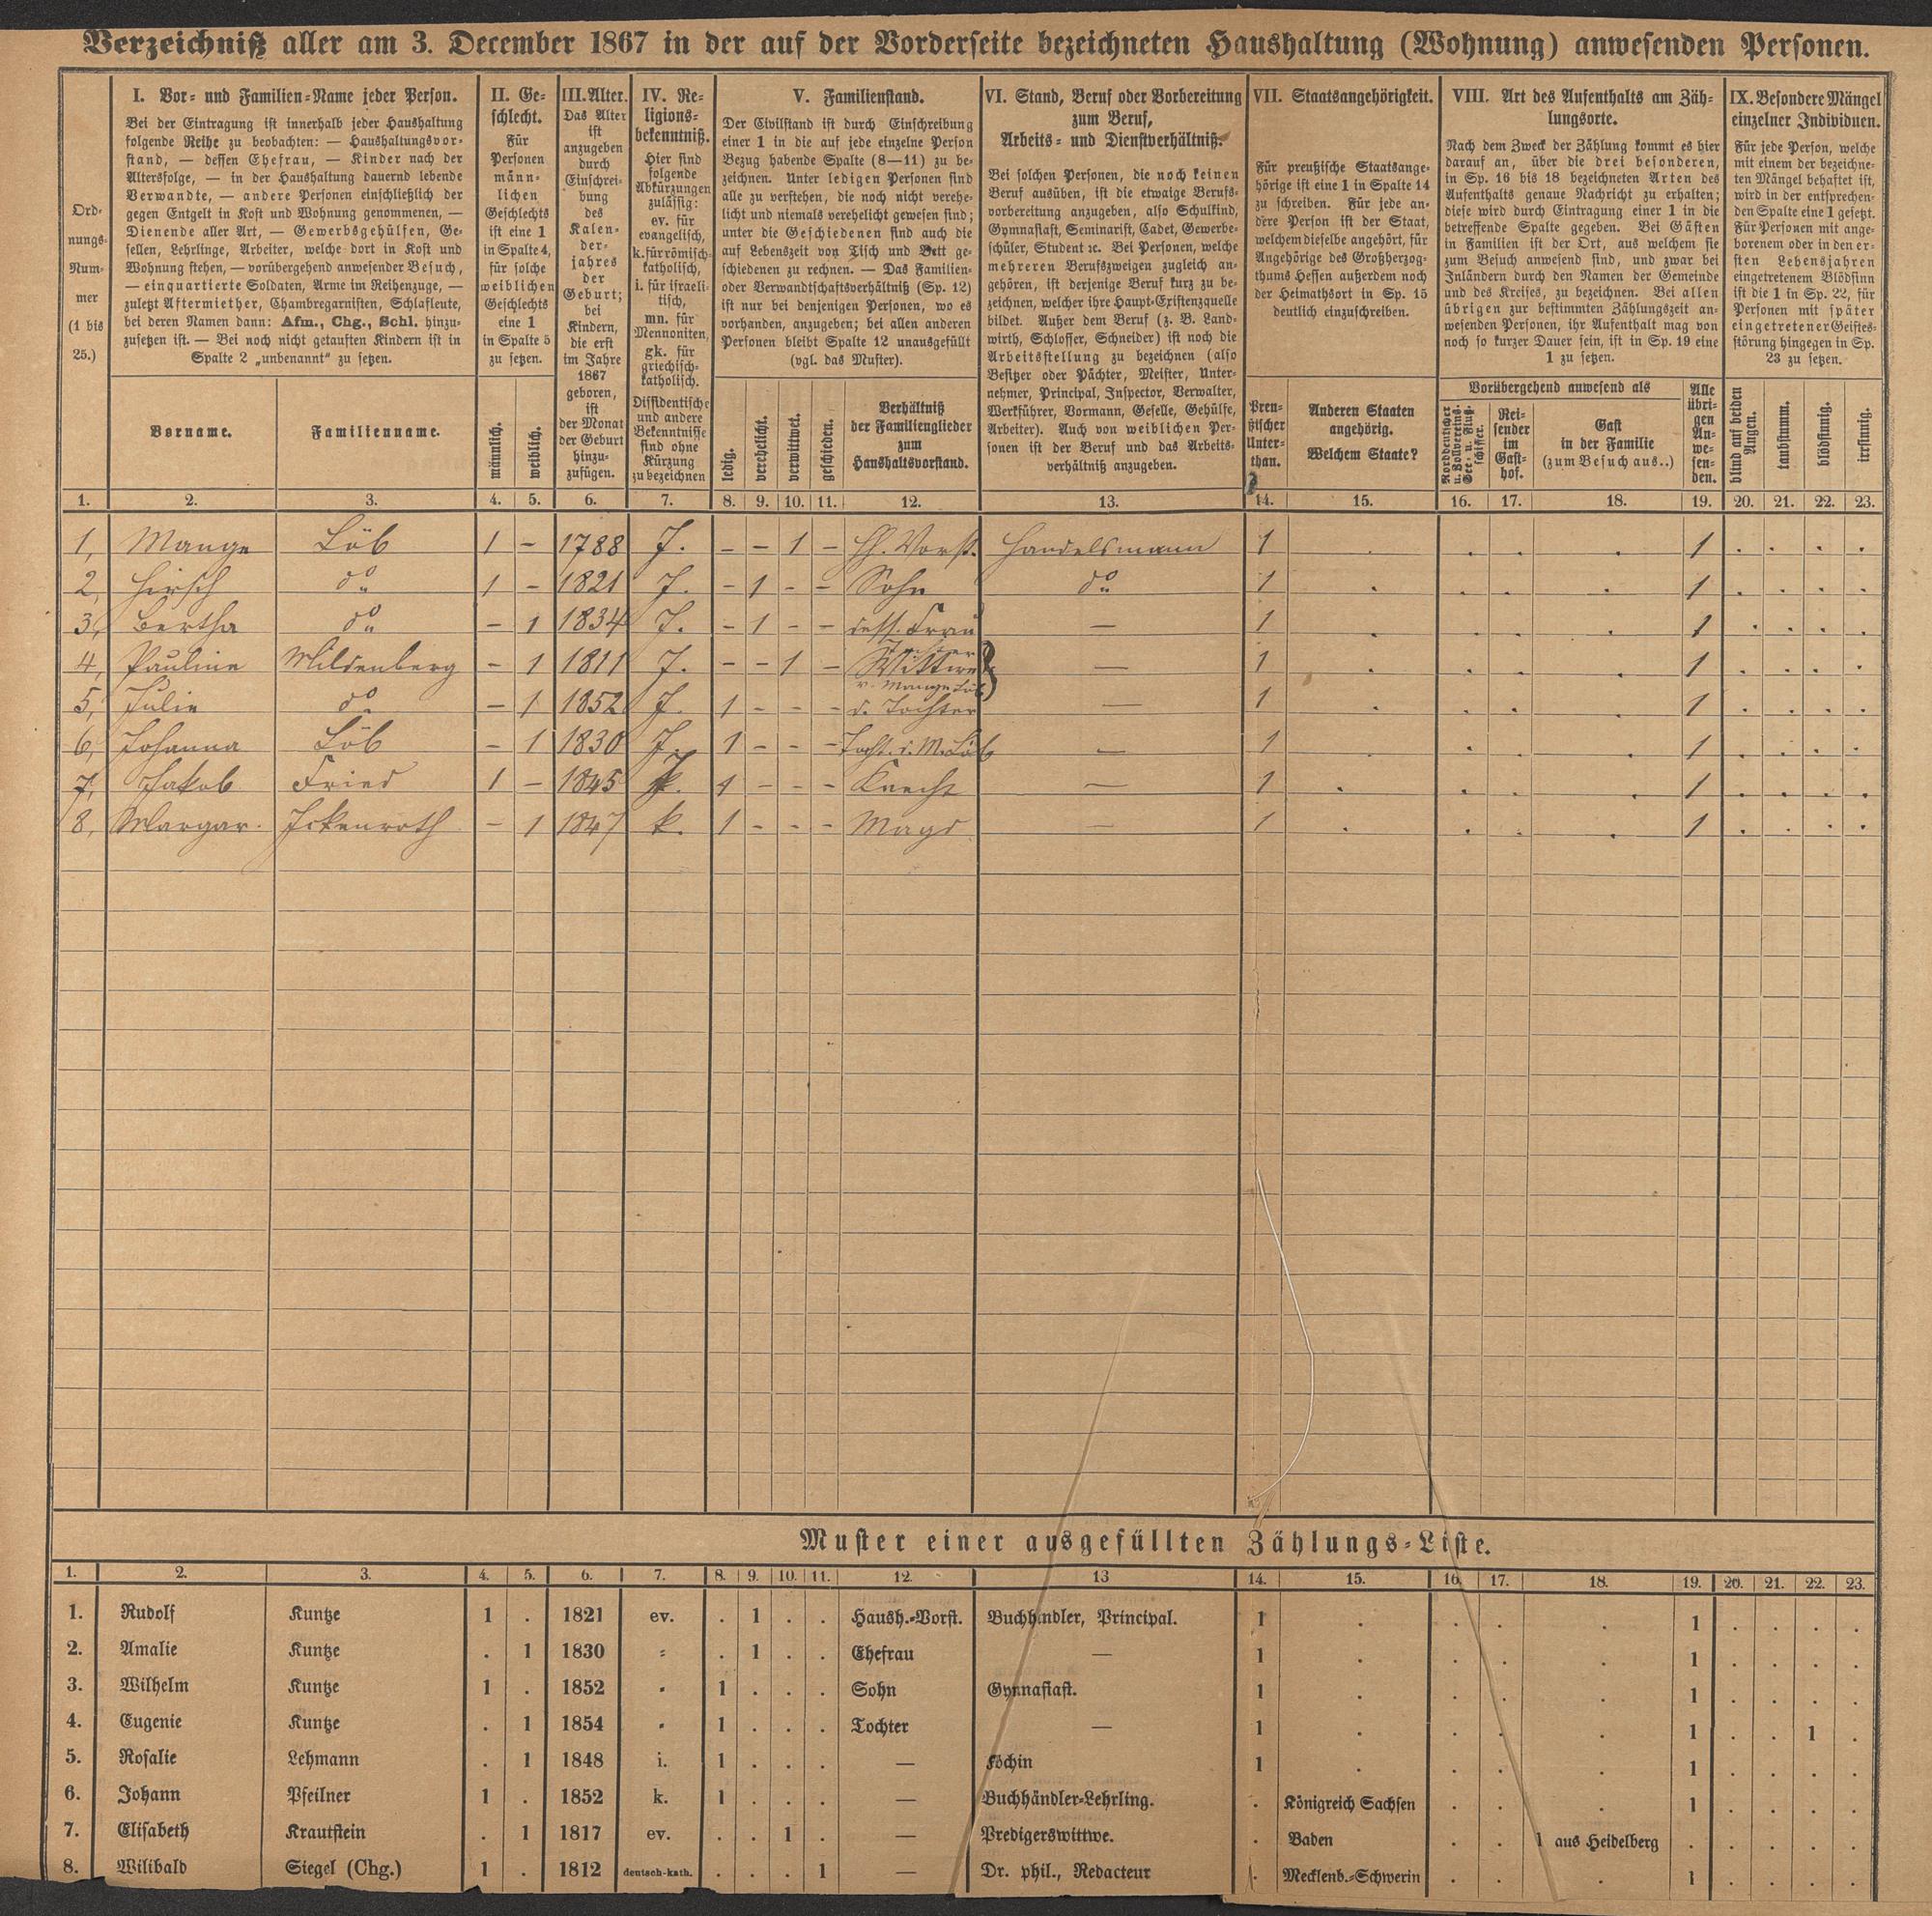 Verzeichniß aller am 3. December 1867 in der auf der Vorderseite bezeichneten Haushaltung (Wohnung) anwesenden Personen.
Ord-
nungs-
Num-
mer
(1 bis
25.)
I. Vor- und Familien-Name jeder Person.
Bei der Eintragung ist innerhalb jeder Haushaltung
folgende Reihe zu beobachten: — Haushaltungsvor-
stand, — dessen Ehefrau, — Kinder nach der
Altersfolge, — in der Haushaltung dauernd lebende
Verwandte, — andere Personen einschließlich der
gegen Entgelt in Kost und Wohnung genommenen, —
Dienende aller Art, — Gewerbsgehülfen, Ge-
sellen, Lehrlinge, Arbeiter, welche dort in Kost und
Wohnung stehen, — vorübergehend anwesender Besuch,
— einquartierte Soldaten, Arme im Reihenzuge, —
zuletzt Aftermiether, Chambregarnisten, Schlafleute,
bei deren Namen dann: Afm., Chg., Schl. hinzu-
zusetzen ist. — Bei noch nicht getauften Kindern ist in
Spalte 2 „unbenannt“ zu setzen.
Vorname.
Familienname.
II. Ge-
schlecht.
Für
Personen
männ-
lichen
Geschlechts
ist eine 1
in Spalte 4,
für solche
weiblichen
Geschlechts
eine 1
in Spalte 5
zu setzen.
männlich.
weiblich.
III. Alter.
Das Alter
ist
anzugeben
durch
Einschrei-
bung
des
Kalen-
der-
jahres
der
Geburt;
bei
Kindern,
die erst
im Jahre
1867
geboren,
ist
der Monat
der Geburt
hinzu-
zufügen.
IV. Re-
ligions-
bekenntniß.
Hier sind
folgende
Abkürzungen
zulässig:
ev. für
evangelisch,
k. für römisch-
katholisch,
i. für israeli-
tisch,
mn. für
Mennoniten,
gk. für
griechisch-
katholisch.
Dissidentische
und andere
Bekenntnisse
sind ohne
Kürzung
zu bezeichnen
V. Familienstand.
Der Civilstand ist durch Einschreibung
einer 1 in die auf jede einzelne Person
Bezug habende Spalte (8—11) zu be-
zeichnen. Unter ledigen Personen sind
alle zu verstehen, die noch nicht verehe-
licht und niemals verehelicht gewesen sind;
unter die Geschiedenen sind auch die
auf Lebenszeit von Tisch und Bett ge-
schiedenen zu rechnen. — Das Familien-
oder Verwandtschaftsverhältniß (Sp. 12)
ist nur bei denjenigen Personen, wo es
vorhanden, anzugeben; bei allen anderen
Personen bleibt Spalte 12 unausgefüllt
(vgl. das Muster).
ledig.
verehelicht.
verwittwet.
geschieden.
Verhältniß
der Familienglieder
zum
Haushaltsvorstand.
VI. Stand, Beruf oder Vorbereitung
zum Beruf,
Arbeits- und Dienstverhältniß.
Bei solchen Personen, die noch keinen
Beruf ausüben, ist die etwaige Berufs-
vorbereitung anzugeben, also Schulkind,
Gymnasiast, Seminarist, Cadet, Gewerbe-
schüler, Student ꝛc. Bei Personen, welche
mehreren Berufszweigen zugleich an-
gehören, ist derjenige Beruf kurz zu be-
zeichnen, welcher ihre Haupt-Existenzquelle
bildet. Außer dem Beruf (z. B. Land-
wirth, Schlosser, Schneider) ist noch die
Arbeitsstellung zu bezeichnen (also
Besitzer oder Pächter, Meister, Unter-
nehmer, Principal, Inspector, Verwalter,
Werkführer, Vormann, Geselle, Gehülfe,
Arbeiter). Auch von weiblichen Per-
sonen ist der Beruf und das Arbeits-
verhältniß anzugeben.
VII. Staatsangehörigkeit.
Für preußische Staatsange-
hörige ist eine 1 in Spalte 14
zu schreiben. Für jede an-
dere Person ist der Staat,
welchem dieselbe angehört, für
Angehörige des Großherzog-
thums Hessen außerdem noch
der Heimathsort in Sp. 15
deutlich einzuschreiben.
Preu-
ßischer
Unter-
than.
Anderen Staaten
angehörig.
Welchem Staate?
VIII. Art des Aufenthalts am Zäh-
lungsorte.
Nach dem Zweck der Zählung kommt es hier
darauf an, über die drei besonderen,
in Sp. 16 bis 18 bezeichneten Arten des
Aufenthalts genaue Nachricht zu erhalten;
diese wird durch Eintragung einer 1 in die
betreffende Spalte gegeben. Bei Gästen
in Familien ist der Ort, aus welchem sie
zum Besuch anwesend sind, und zwar bei
Inländern durch den Namen der Gemeinde
und des Kreises, zu bezeichnen. Bei allen
übrigen zur bestimmten Zählungszeit an-
wesenden Personen, ihr Aufenthalt mag von
noch so kurzer Dauer sein, ist in Sp. 19 eine
1 zu setzen.
Vorübergehend anwesend als
Norddeutscher
u. Zollvereins-
See- u. Fluß-
schiffer.
Rei-
sender
im
Gast-
hof.
Gast
in der Familie
(zum Besuch aus..)
Alle
übri-
gen
An-
we-
sen-
den.
IX. Besondere Mängel
einzelner Individuen.
Für jede Person, welche
mit einem der bezeichne-
ten Mängel behaftet ist,
wird in der entsprechen-
den Spalte eine 1 gesetzt.
Für Personen mit ange-
borenem oder in den er-
sten Lebensjahren
eingetretenem Blödsinn
ist die 1 in Sp. 22, für
Personen mit später
eingetretener Geistes-
störung hingegen in Sp.
23 zu setzen.
blind auf beiden
Augen.
taubstumm.
blödsinnig.
irrsinnig.
1. 2. 3. 4. 5. 6. 7. 8. 9. 10. 11. 12. 13. 14. 15. 16. 17. 18. 19. 20. 21. 22. 23.
1, Mange Löb 1 – 1788 J. – – 1 – H. Vorst. Handelsmann 1 . . . . 1 . . . .
2, Hirsch do 1 – 1821 J. – 1 – – Sohn do 1 . . . . 1 . . . .
3, Bertha do – 1 1834 J. – 1 – – dess. Frau — 1 . . . . 1 . . . .
4, Pauline Mildenberg – 1 1811 J. – – 1 – Wittwe — 1 . . . . 1 . . . .
v. Mange Löb
5, Julie do – 1 1852 J. 1 – – – d. Tochter — 1 . . . . 1 . . . .
6, Johanna Löb – 1 1830 J. 1 – – – Tocht. v. M. Löb — 1 . . . 1 . . . .
7, Jakob Fried 1 – 1845 1 – – – Knecht — 1 . . . . 1 . . . .
8, Margar. Jckenroth – 1 1847 k. 1 – – – Magd — 1 . . . . 1 . . . .
Muster einer ausgefüllten Zählungs-Liste.
1. 2. 3. 4. 5. 6. 7. 8. 9. 10. 11. 12. 13 14. 15. 16. 17. 18. 19. 20. 21. 22. 23.
1. Rudolf Kuntze 1 . 1821 ev. . 1 . . Haush.-Vorst. Buchhändler, Principal. 1 . . . . 1 . . . .
2. Amalie Kuntze . 1 1830 „ . 1 . . Ehefrau — 1 . . . . 1 . . . .
3. Wilhelm Kuntze 1 . 1852 „ 1 . . . Sohn Gymnasiast. 1 . . . . 1 . . . .
4. Eugenie Kuntze . 1 1854 „ 1 . . . Tochter — 1 . . . . 1 . . 1 .
5. Rosalie Lehmann . 1 1848 i. 1 . . . — Köchin 1 . . . . 1 . . . .
6. Johann Pfeilner 1 . 1852 k. 1 . . . — Buchhändler-Lehrling. . Königreich Sachsen . . . 1 . . . .
7. Elisabeth Krautstein . 1 1817 ev. . . 1 . — Predigerswittwe. . Baden . . 1 aus Heidelberg . . . . .
8. Wilibald Siegel (Chg.) 1 . 1812 deutsch-kath. . . . 1 — Dr. phil., Redacteur . Mecklenb.-Schwerin . . . 1 . . . .